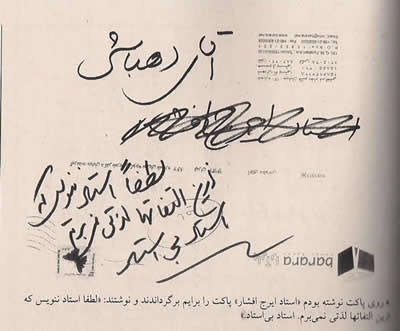 آقای دهباشی
استاد ایرج افشار
لطفاً استاد ننویس که
ازین التفاتها لذتی نمی‌برم
استاد بی استاد
barara
روی پاکت نوشته بودم «استاد ایرج افشار» پاکت را برایم برگرداندند و نوشتند: «لطفا استاد ننویس که
ازین التفاتها لذتی نمی‌برم. استاد بی‌استاد.»